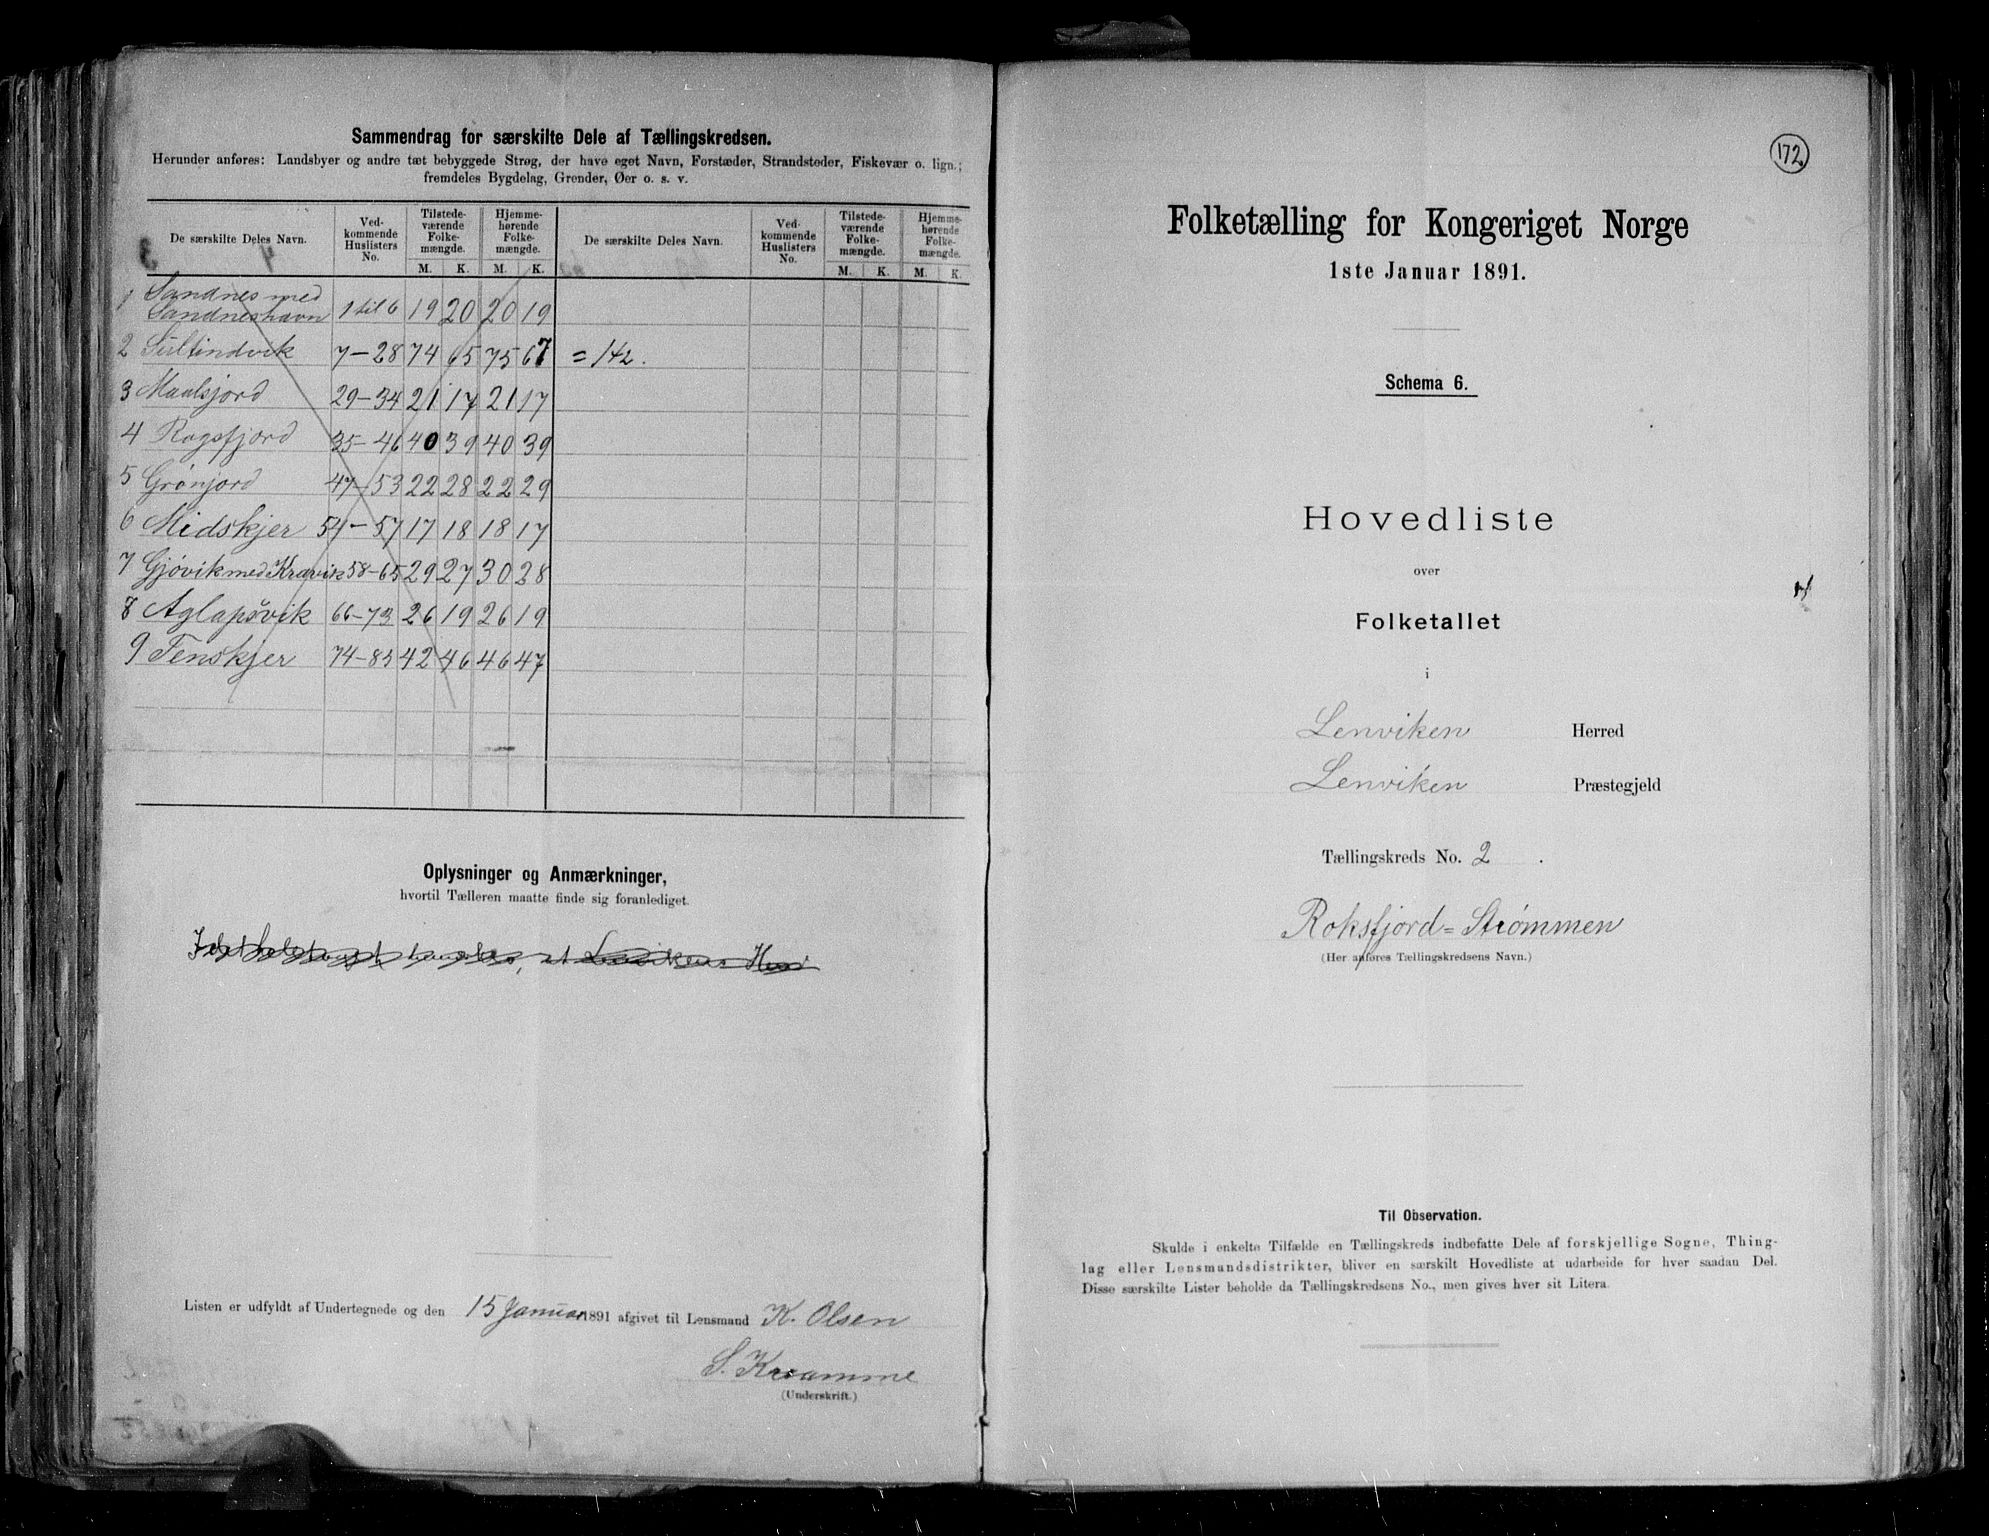 Sammendrag for særskilte Dele af Tællingskredsen.
Herunder anføres: Landsbyer og andre tæt bebyggede Strøg, der have eget Navn, Forstæder, Strandsteder, Fiskevær o. lign.;
fremdeles Bygdelag, Grender, Øer o. s. v.
De særskilte Deles Navn. Ved-kommende Huslisters No. Tilstede-værende Folke-mængde. Hjemme-hørende Folke-mængde. De særskilte Deles Navn. Ved-kommende Huslisters No. Tilstede-værende Folke-mængde. Hjemme-hørende Folke-mængde.
M. K. M. K. M. K. M. K.
1 Sandnes med
Sandneshavn 1 til 6 19 20 20 19
2 Sultindvik 7-28 74 65 75 67 = 142.
3 Maalsjord 29-34 21 17 21 17
4 Rogsfjord 35-46 40 39 40 39
5 Grønjord 47-53 22 28 22 29
6 Midskjer 54-57 17 18 18 17
7 Gjøvik med Kravik 58-65 29 27 30 28
8 Aglapsvik 66-73 26 19 26 19
9 Tenskjer 74-85 42 46 46 47
Oplysninger og Anmærkninger,
hvortil Tælleren maatte finde sig foranlediget.
Listen er udfyldt af Undertegnede og den 15 Januar 1891 afgivet til Lensmand K. Olsen
S. Kraamme
(Underskrift.)
172
Folketælling for Kongeriget Norge
1ste Januar 1891.
Schema 6.
Hovedliste
over
Folketallet
i
Lenviken Herred
Lenviken Præstegjeld
Tællingskreds No. 2 .
Roksfjord=Strømmen
(Her anføres Tællingskredsens Navn.)
Til Observation.
Skulde i enkelte Tilfælde en Tællingskreds indbefatte Dele af forskjellige Sogne, Thing-
lag eller Lensmandsdistrikter, bliver en særskilt Hovedliste at udarbeide for hver saadan Del.
Disse særskilte Lister beholde da Tællingskredsens No., men gives hver sit Litera.